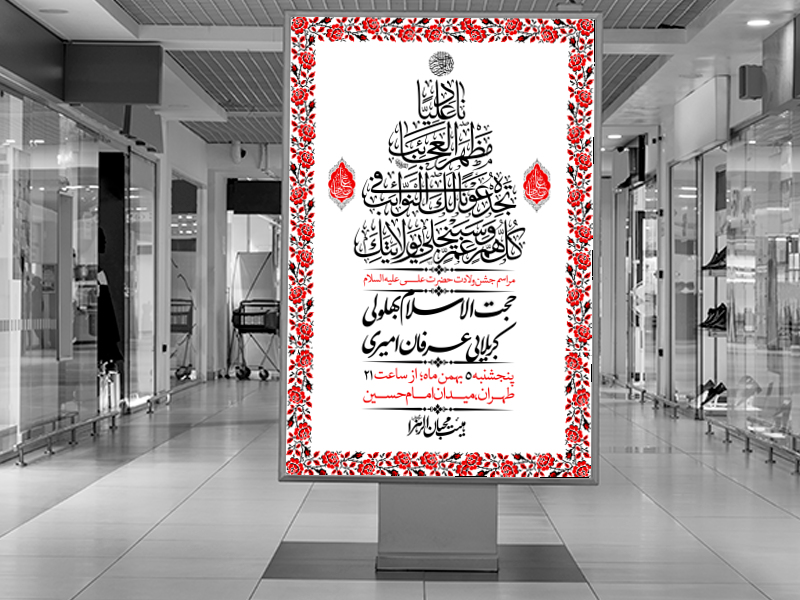 ناد علیاً
مظهر العجائب
تجده عوناً لك فی النوائب
كل هم وغم سينجلي بولايتك
مراسم جشن ولادت حضرت علی علیه السلام
حجت الاسلام بهلولی
کربلایی عرفان امیری
پنجشنبه ۵ بهمن ماه؛ از ساعت ۲۱
طهران، میدان امام حسین
هیئت محبان الزهرا